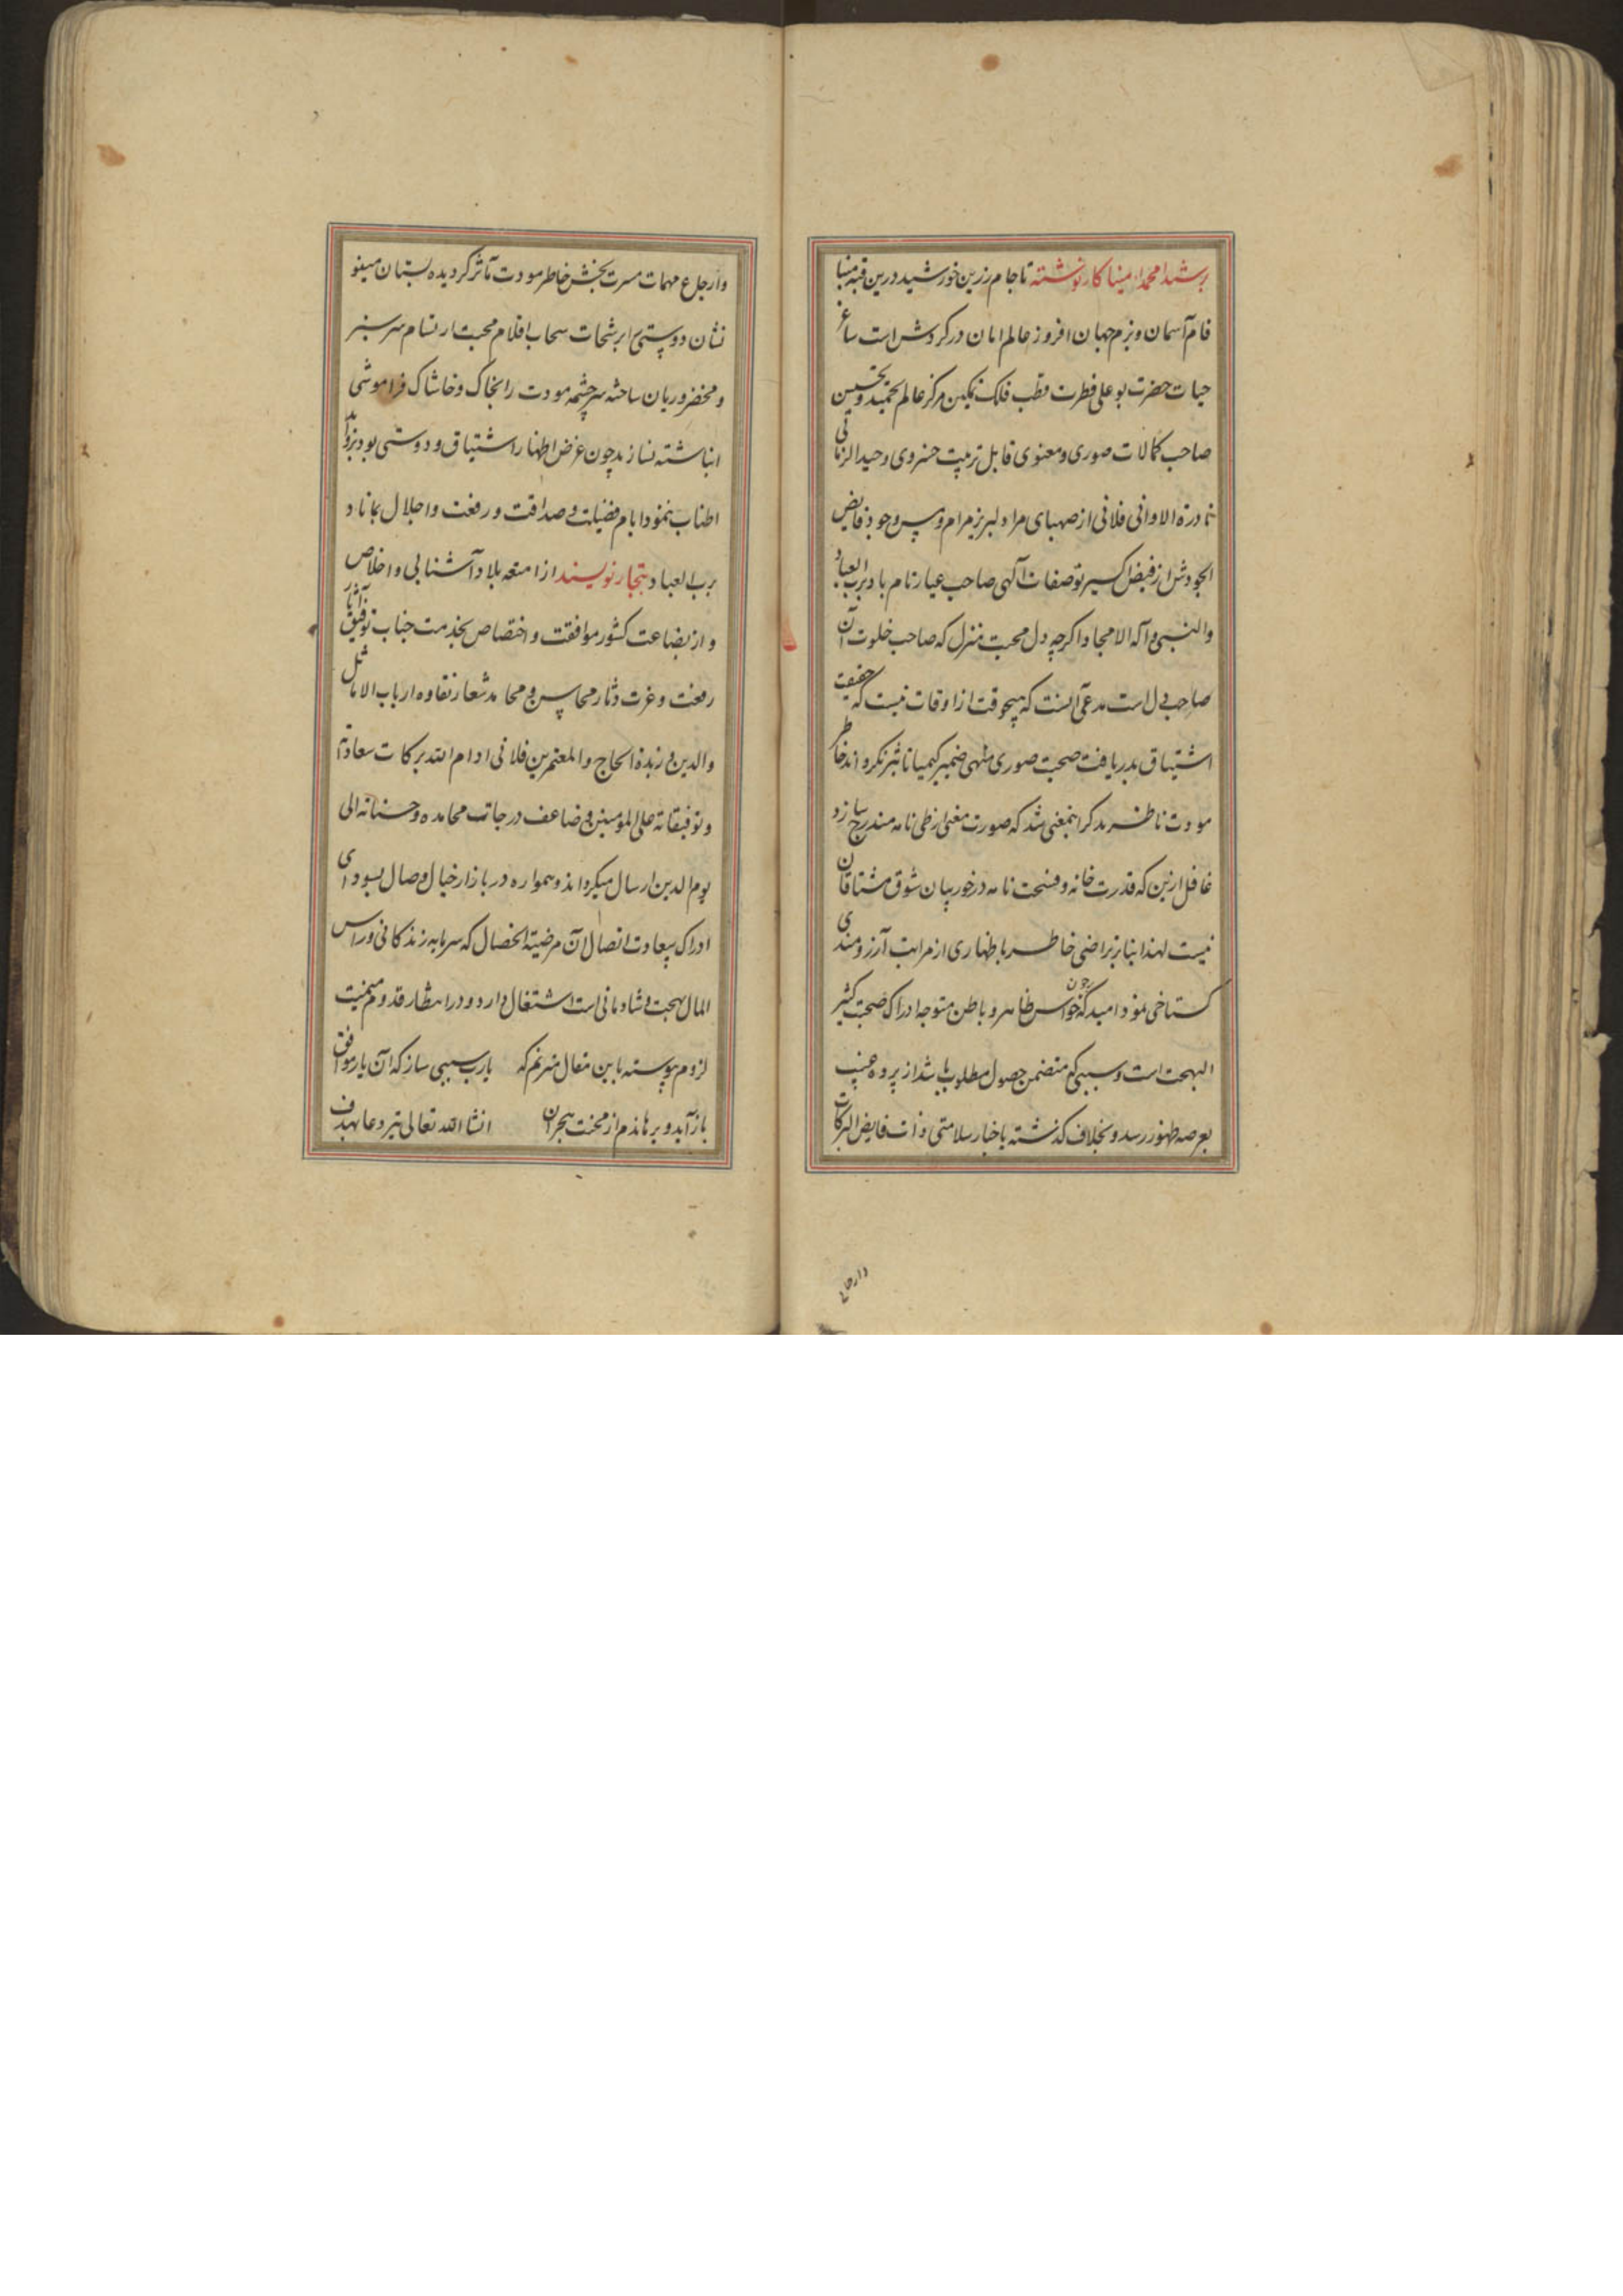 برشیدا محمد امینا کار نوشته تا جام زرین خورشید درین قبه مینا
فام آسمان و بزم جهان افروز عالم امان در کردش است ساغر
حیات حضرت بو علی فطرت قطب فلک تمکین مرکز عالم تحمید و تحسین
صاحب کمالات صوری و معنوی قابل تربیت خسروی وحید الزمانی
نادرة الاوانی فلانی از صهبای مراد لبریز مرام و مس وجود فایض
الجودش از فیض اکسیر توصفات آلهی صاحب عیار تام باد برب العباد
والنبی و آله الامجاد اکرچه دل محبت منزل که صاحب خلوت آن
صاحب دل است مدعی آنست که هیچوقت از اوقات نیست که حقیقت
اشتیاق بدریافت صحبت صوری منهی ضمیر کیمیا تاثیر نکرداند خاطر
مودت ناظر بذکر اینمعنی شد که صورت معنی از طی نامه مندرج سازد
غافل ازین که قدرت خامه و فسحت نامه در خور بیان شوق مشتاقان
نیست لهذا بنابر تراضی خاطر باظهاری از مراتب آرزومندی
کستاخی نمود امید که چون حواس ظاهر و باطن متوجه ادراک صحبت کثیر
البهجت است و سببی که متضمن حصول مطلوب باشد از پرده غیب
بعرصه ظهور رسد و بخلاف کذشته باخبار سلامتی ذات فایض البرکات
وارجاع
وارجاع مهمات مسرت بخش خاطر مودت مآثر کردیده بستان مینو
نشان دوستی از رشحات سحاب اقلام محبت ارتسام سرسبز
و مخضر و ریان ساخته سرچشمه مودت را بخاک و خاشاک فراموشی
انباشته نسازند چون غرض اظهار اشتیاق و دوستی بود بزواید
اطناب ننمود ایام فضیلت و صداقت و رفعت و اجلال بماناد
برب العباد بتجار نویسند از امتعه بلاد آشنایی و اخلاص
و از بضاعت کشور موافقت و اختصاص بخدمت جناب توفیق آثار
رفعت و عزت دثار محاسن و محامد شعار نقاوه ارباب الاماثل
والدین و زبدة الحاج والمعتمرین فلانی ادام الله برکات سعادته
و توفیقاته علی المؤمنین و ضاعف درجات محامده و حسناته الی
یوم الدین ارسال میکرداند و همواره در بازار خیال وصال بسودای
ادراک سعادت اتصال آن مرضیة الخصال که سرمایه زندکانی و راس
المال بهجت و شادمانی است اشتغال دارد و در انتظار قدوم میمنت
لزوم پیوسته باین مقال مترنم که یارب سببی ساز که آن یار موافق
باز آید و برهاندم از محنت هجران انشا الله تعالی تیر دعا بهدف